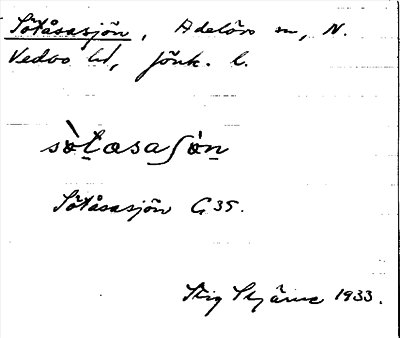 Sötåsasjön, Adelövs sn, N.
Vedbo hd, Jönk. l.
sòtasaʃòn
Sötåsasjön G35.
Stig Stjärne 1933.